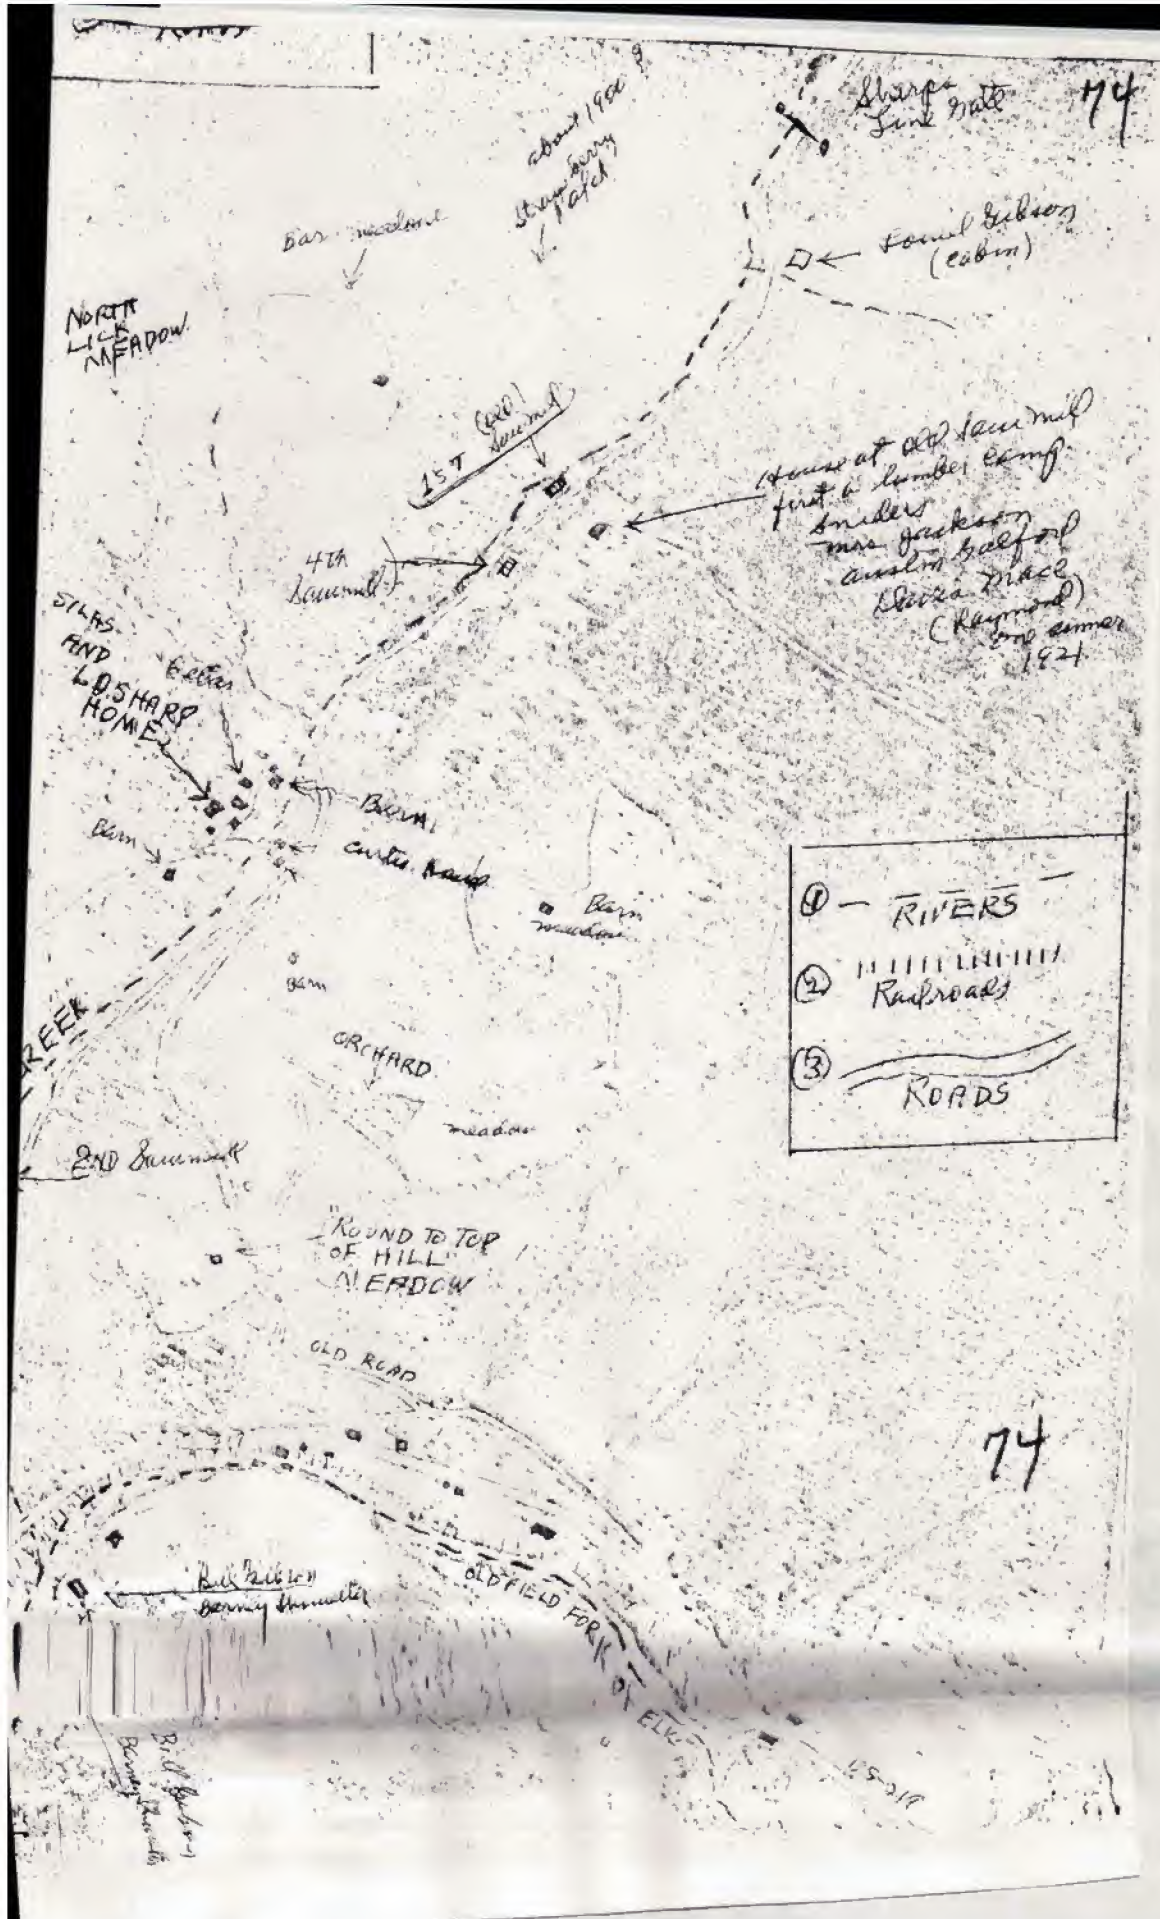 74
Sharps
Line Gate
about 1900
Strawberry
Patch
Bar meadow
Gibson
(cabin)
NORTH
LICK
MEADOW
(OLD)
1ST Sawmill
House at old Saw mill
first a lumber camp
Sniders
Mrs Jackson
Austin Galford
Mace
(Raymond)
one summer
1921
4TH
Sawmill
SILAS
AND
L.D. SHARP
HOME
Cellar
Barn
Curtis
Barn
meadow
Barn
① RIVERS
② Railroads
③ ROADS
CREEK
ORCHARD
meadow
2ND Sawmill
"ROUND TO TOP
OF HILL"
MEADOW
OLD ROAD
74
Bill Gibson
Barney
OLD FIELD FORK OF ELK
US-219
Bill
Barney